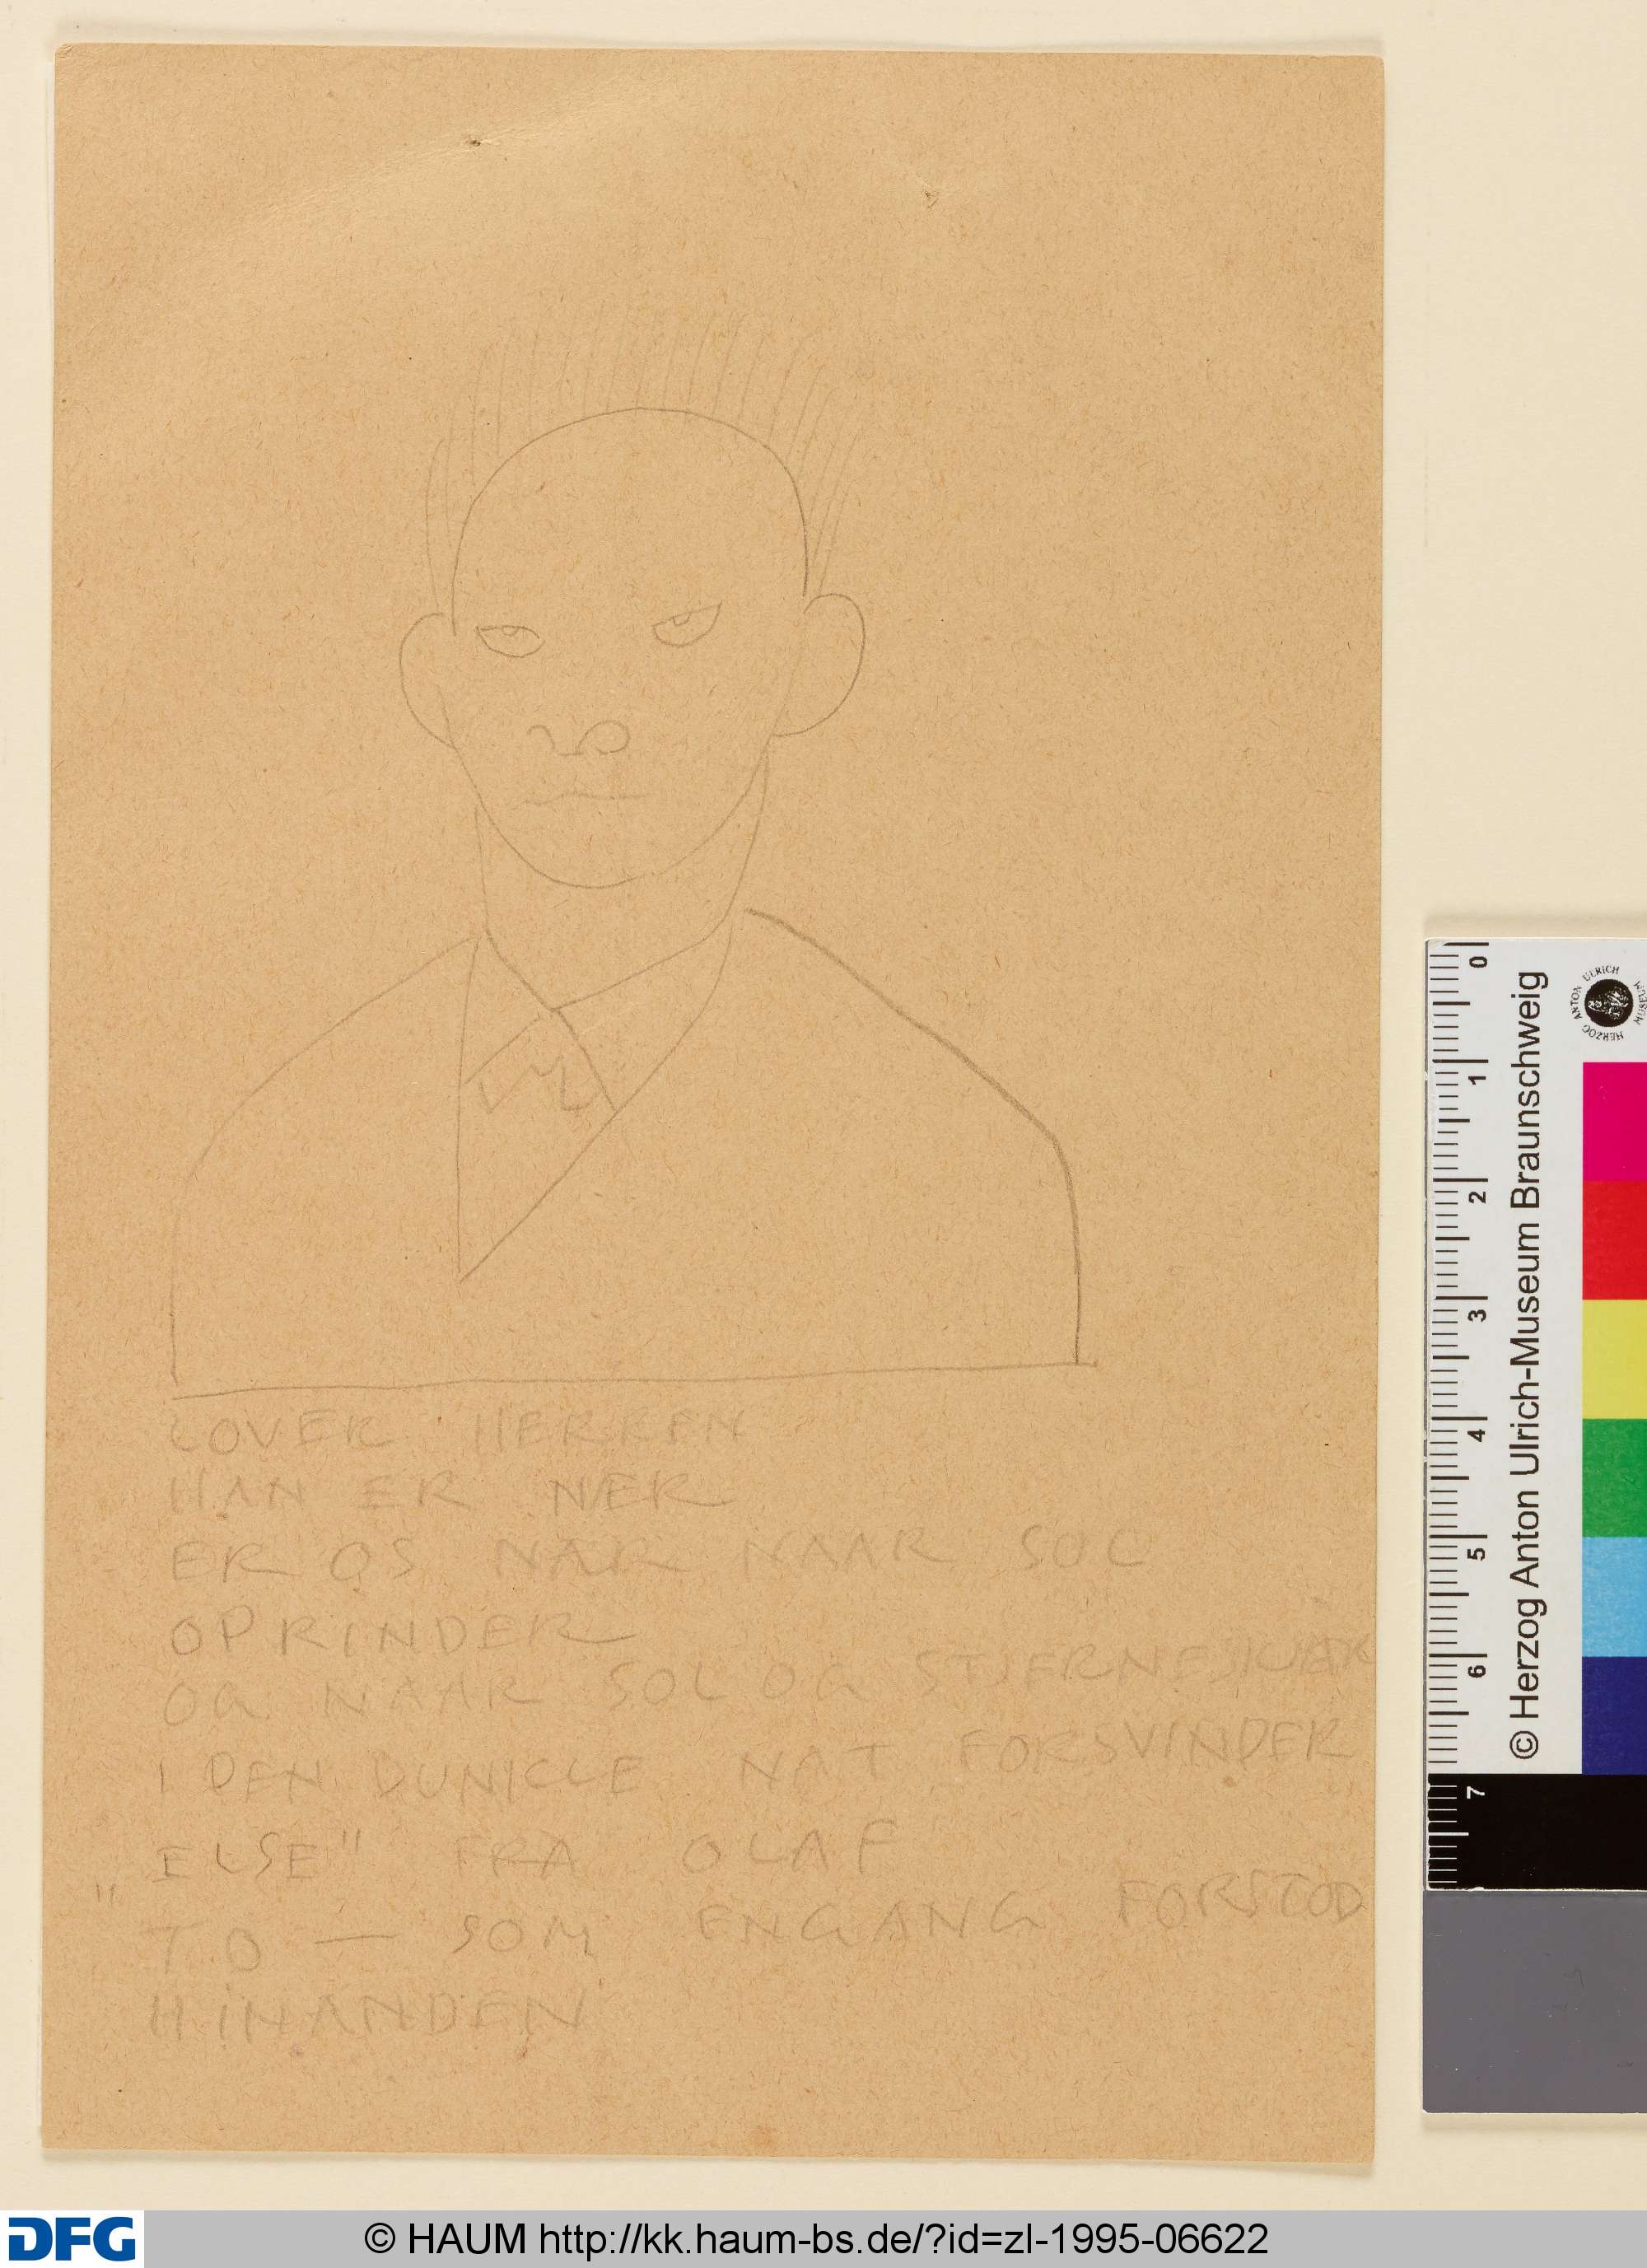 LOVER HERREN
HAN ER NÆR
ER OS NÆR NAAR SOL
OPRINDER
OG NAAR SOL OG
I DEN DUNKLE NAT FORSVINDER
ELSE" FRA OLAF
"
TO — SOM ENGANG FORSTOD
HINANDEN
0 1 2 3 4 5 6 7
© Herzog Anton Ulrich-Museum Braunschweig
HERZOG ANTON ULRICH MUSEUM
DFG © HAUM http://kk.haum-bs.de/?id=zl-1995-06622